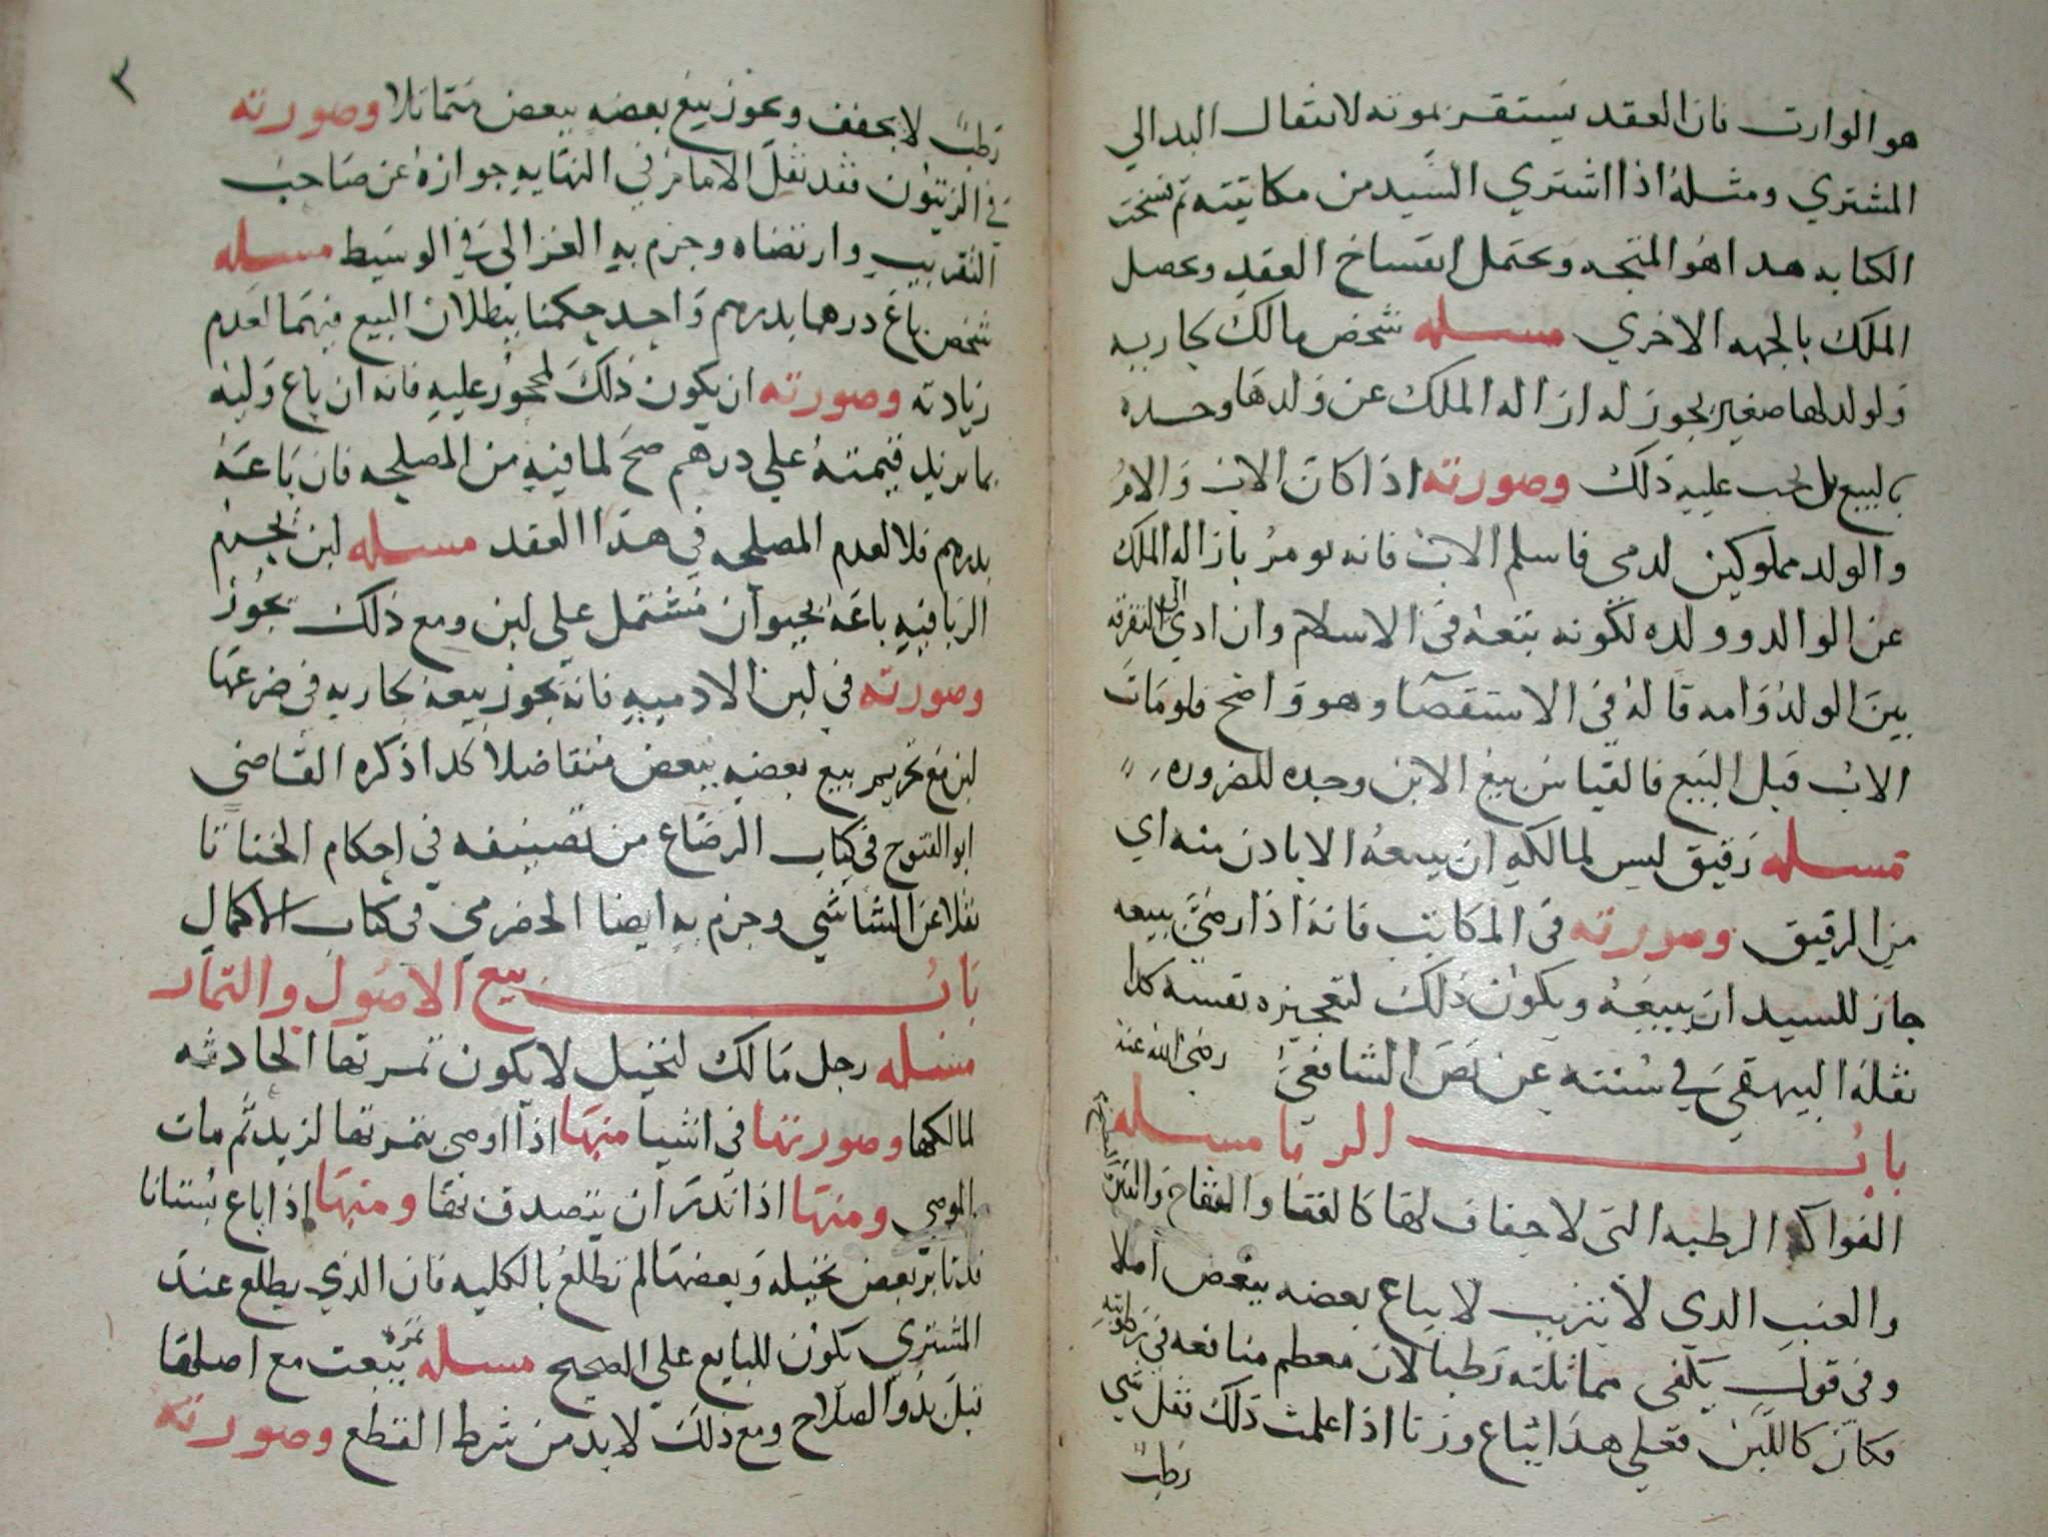 هو الوارث فان العقد يستقر بموته لا نتقال البدالي
المشتري ومثله اذا اشتري السيد من مكاتبته ثم فسخت
الكتابه هدا هو المتجه ويحتمل انفساخ العقد ويحصل
الملك بالجهه الاخري مسله شخص مالك لجاريه
ولولد لها صغير يجوز له ازاله الملك عن ولدها وحده
بالبيع بل يجب عليه ذلك وصورته اذا كان الاب والام
والولد مملوكين لدمي فاسلم الاب فانه يومر بازاله الملك
عن الوالد وولده لكونه يتبعه في الاسلام وان ادي الى التفرقه
بين الولد وامه قاله في الاستقصا وهو واضح فلو مات
الاب قبل البيع فالقياس بيع الابن وحده للضروره
مسله رقيق ليس لمالكه ان يبيعه الا باذن منه اي
من الرقيق وصورته في المكاتب فانه اذا رضي ببيعه
جاز للسيد ان يبيعه ويكون ذلك لتعجيزه نفسه كدا
نقله البيهقي في سننه عن نص الشافعي رضي الله عنه
باب الربا مسله
الفواكه الرطبه التي لا جفاف لها كالقثا والتفاح والتين
والعنب الدي لا يتزبب لا يباع بعضه ببعض املا
وفي قول يكفي مماثلته رطبا لان معظم منافعه في رطوبته
فكان كاللبن فعلي هدا يباع وزنا اذا علمت ذلك فقل شي
رطب
٢
رطب لا يجفف ويجوز بيع بعضه ببعض متماثلا وصورته
في الزيتون فقد نقل الامام في النهايه جوازه عن صاحب
التقريب وارتضاه وجزم به الغزالي في الوسيط مسله
شخص باع درهما بدرهم واحد حكمنا ببطلان البيع فيهما لعدم
زيادته وصورته ان يكون ذلك لمحجور عليه فانه ان باع وليه
بما يزيد قيمته علي درهم صح لما فيه من المصلحه فان باعه
بدرهم فلا لعدم المصلحه في هذا العقد مسله لبن يجري
الربا فيه باعه بحيوان مشتمل على لبن ومع ذلك يجوز
وصورته في لبن الادميه فانه يجوز بيعه بجاريه في ضرعها
لبن مع تحريم بيع بعضه ببعض متفاضلا كدا ذكره القاضي
ابو الفتوح في كتاب الرضاع من تصنيفه في احكام الخناثا
نقلا عن الشاشي وجزم به ايضا الحضرمي في كتاب الاكمال
باب بيع الاصول والثمار
مسله رجل مالك لنخيل لا يكون ثمرتها الحادثه
لمالكها وصورتها في اشيا منها اذا اوصي بثمرتها لزيد ثم مات
الموصي ومنها اذا نذر ان يتصدق بها ومنها اذا باع بستانا
قد تابر بعض نخيله وبعضها لم تطلع بالكليه فان الذي يطلع عند
المشتري يكون للبايع علي الصحيح مسله ثمره بيعت مع اصلها
قبل بدو الصلاح ومع ذلك لا بد من شرط القطع وصورته